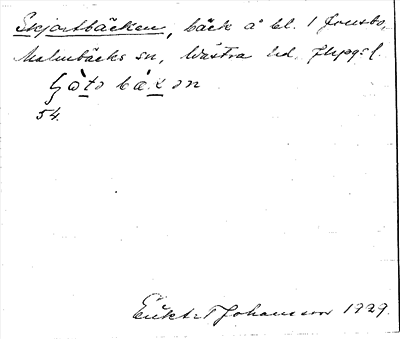 Skjortbäcken, bäck å bl. 1 Jonsbo,
Malmbäcks sn, Västra hd, Jkpgs l.
bäkən
54.
Erikt. Johansson 1929.